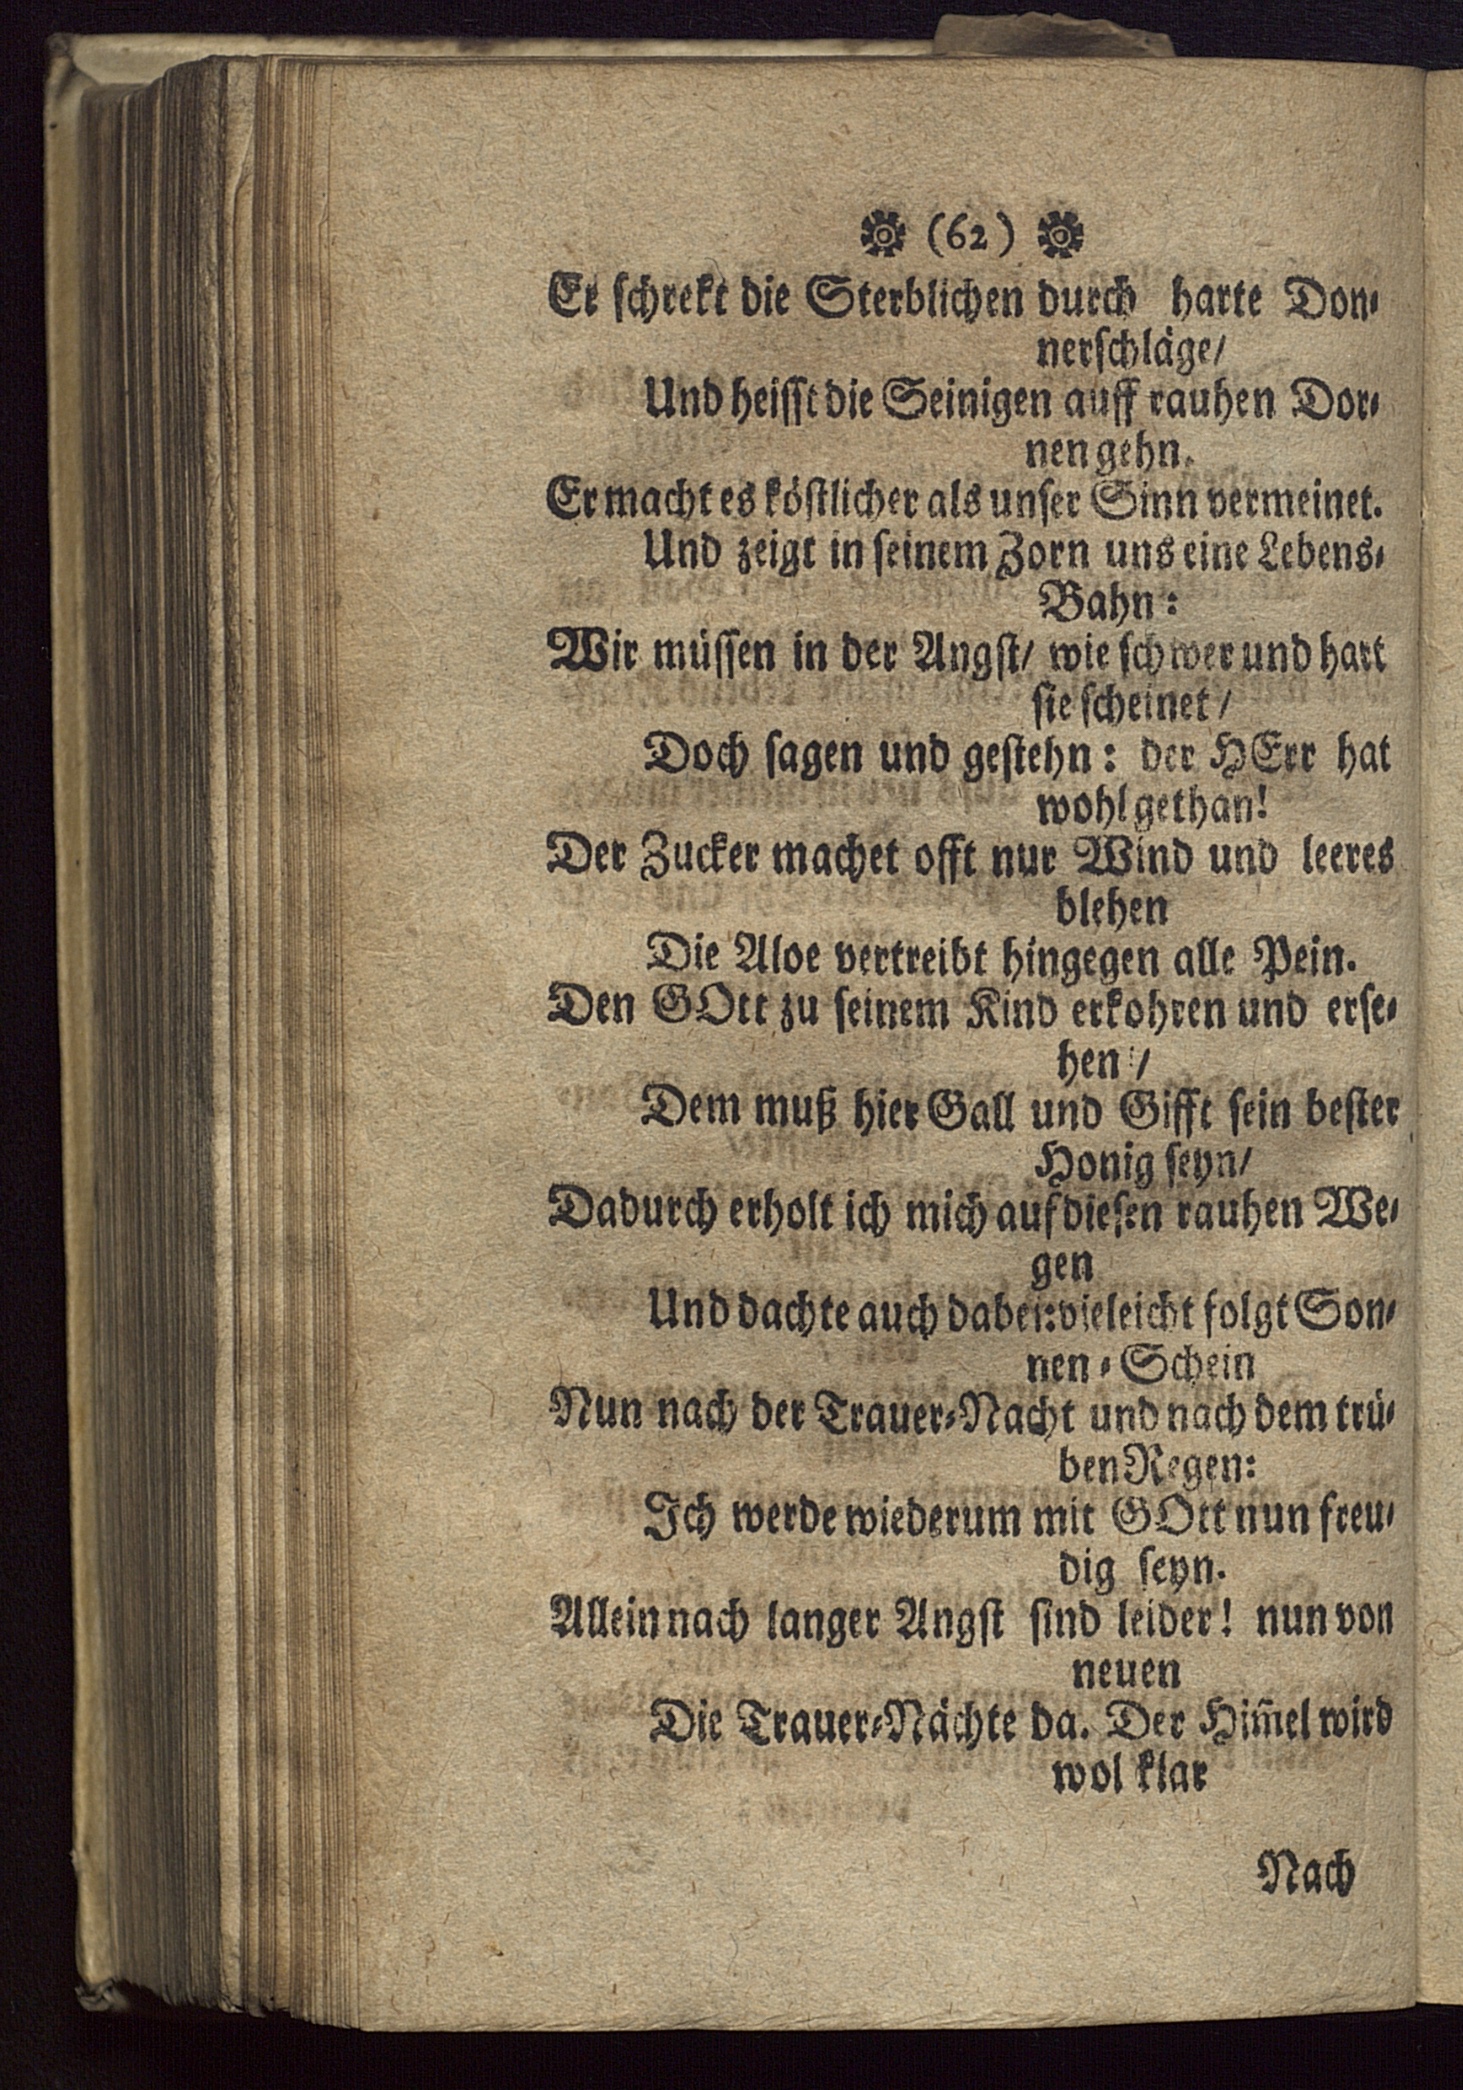 ❁ (62) ❁
Er schrekt die Sterblichen durch harte Don-
nerschläge/
Und heisst die Seinigen auff rauhen Dor-
nen gehn.
Er macht es köstlicher als unser Sinn vermeinet.
Und zeigt in seinem Zorn uns eine Lebens-
Bahn:
Wir müssen in der Angst/ wie schwer und hart
sie scheinet/
Doch sagen und gestehn: der HErr hat
wohl gethan!
Der Zucker machet offt nur Wind und leeres
blehen
Die Aloe vertreibt hingegen alle Pein.
Den GOtt zu seinem Kind erkohren und erse-
hen /
Dem muß hier Gall und Gifft sein bester
Honig seyn/
Dadurch erholt ich mich auf diesen rauhen We-
gen
Und dachte auch dabei: vieleicht folgt Son-
nen-Schein
Nun nach der Trauer-Nacht und nach dem trü-
ben Regen:
Ich werde wiederum mit GOtt nun freu-
dig seyn.
Allein nach langer Angst sind leider! nun von
neuen
Die Trauer-Nächte da. Der Him̃el wird
wol klar
Nach